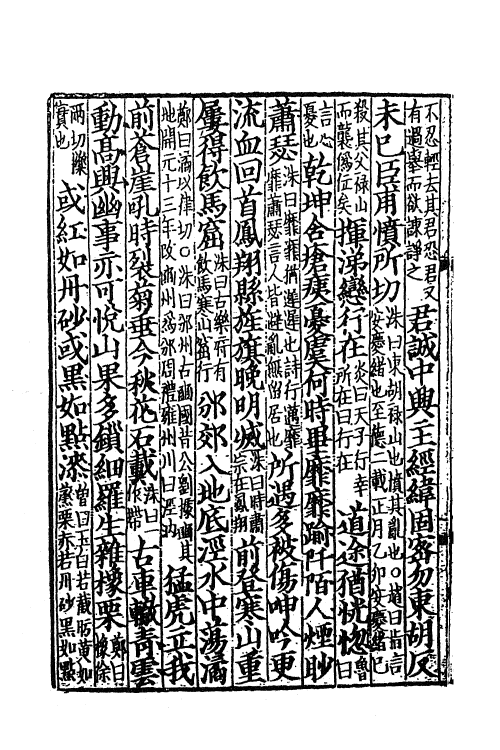 不忍輕去其君恐君又
有過舉而欲諫諍之
君誠中興主經緯固密勿東胡反
未已臣甫憤所切
洙曰東胡祿山也憤其亂也○趙曰
安慶緒也至德二載正月乙卯安慶緒已
殺其父祿山
而襲僞位矣
揮涕戀行在
炎曰天子行幸
所在曰行在
道途猶恍惚
魯曰
言心
憂也
乾坤含瘡痍憂虞何時畢靡靡踰阡陌人煙眇
蕭瑟
洙曰靡靡猶遲遲也詩行邁靡
靡蕭瑟言人皆避亂無留居也
所遇多被傷呻吟更
流血回首鳳翔縣旌旗晚明滅
洙曰時肅
宗在鳳翔
前登寒山重
屢得飲馬窟
洙曰古樂府有
飲馬寒山窟行
邠郊入地底涇水中蕩潏
鄭曰潏以律切○洙曰邠州古豳國昔公劉據豳其
地開元十三年改豳州爲邠周禮雍州川曰涇汭
猛虎立我
前蒼崖吼時裂菊垂今秋花石戴
洙曰
作帶
古車轍青雲
動高興幽事亦可悅山果多鎖細羅生雜橡栗
鄭曰
橡徐
兩切櫟
實也
或紅如丹砂或黑如點漆
曾曰王白若截肪黃如
蒸栗赤若丹砂黑如點